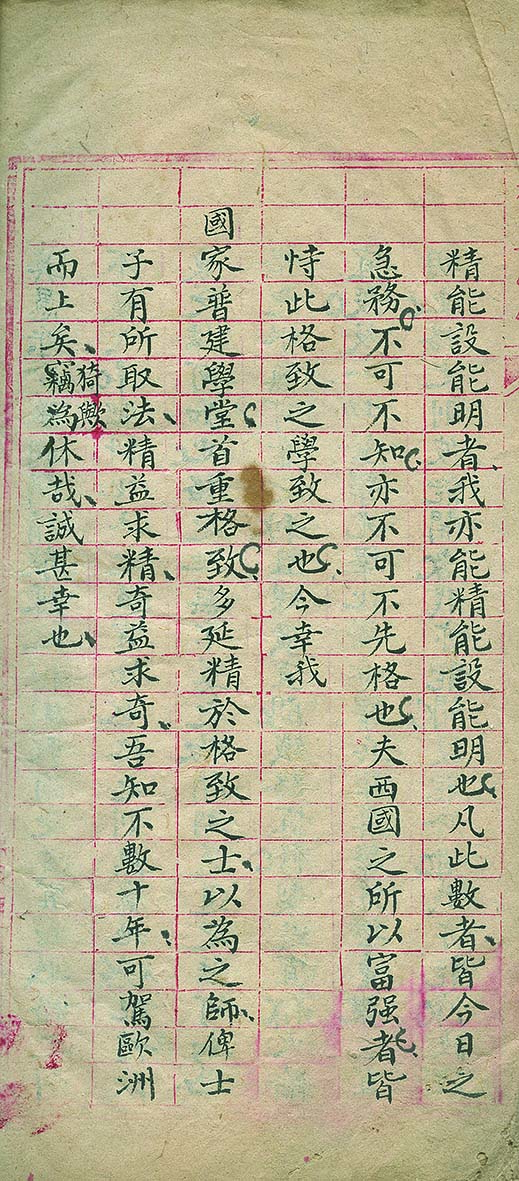 精能設能明者我亦能精能設能明也凡此數者皆今日之
急務不可不知亦不可不先格也夫西國之所以富强者皆
恃此格致之學致之也今幸我
國家普建學堂首重格致多延精於格致之士以為之師俾士
子有所取法精益求精奇益求奇吾知不數十年可駕歐洲
而上矣猗歟竊為休哉誠甚幸也